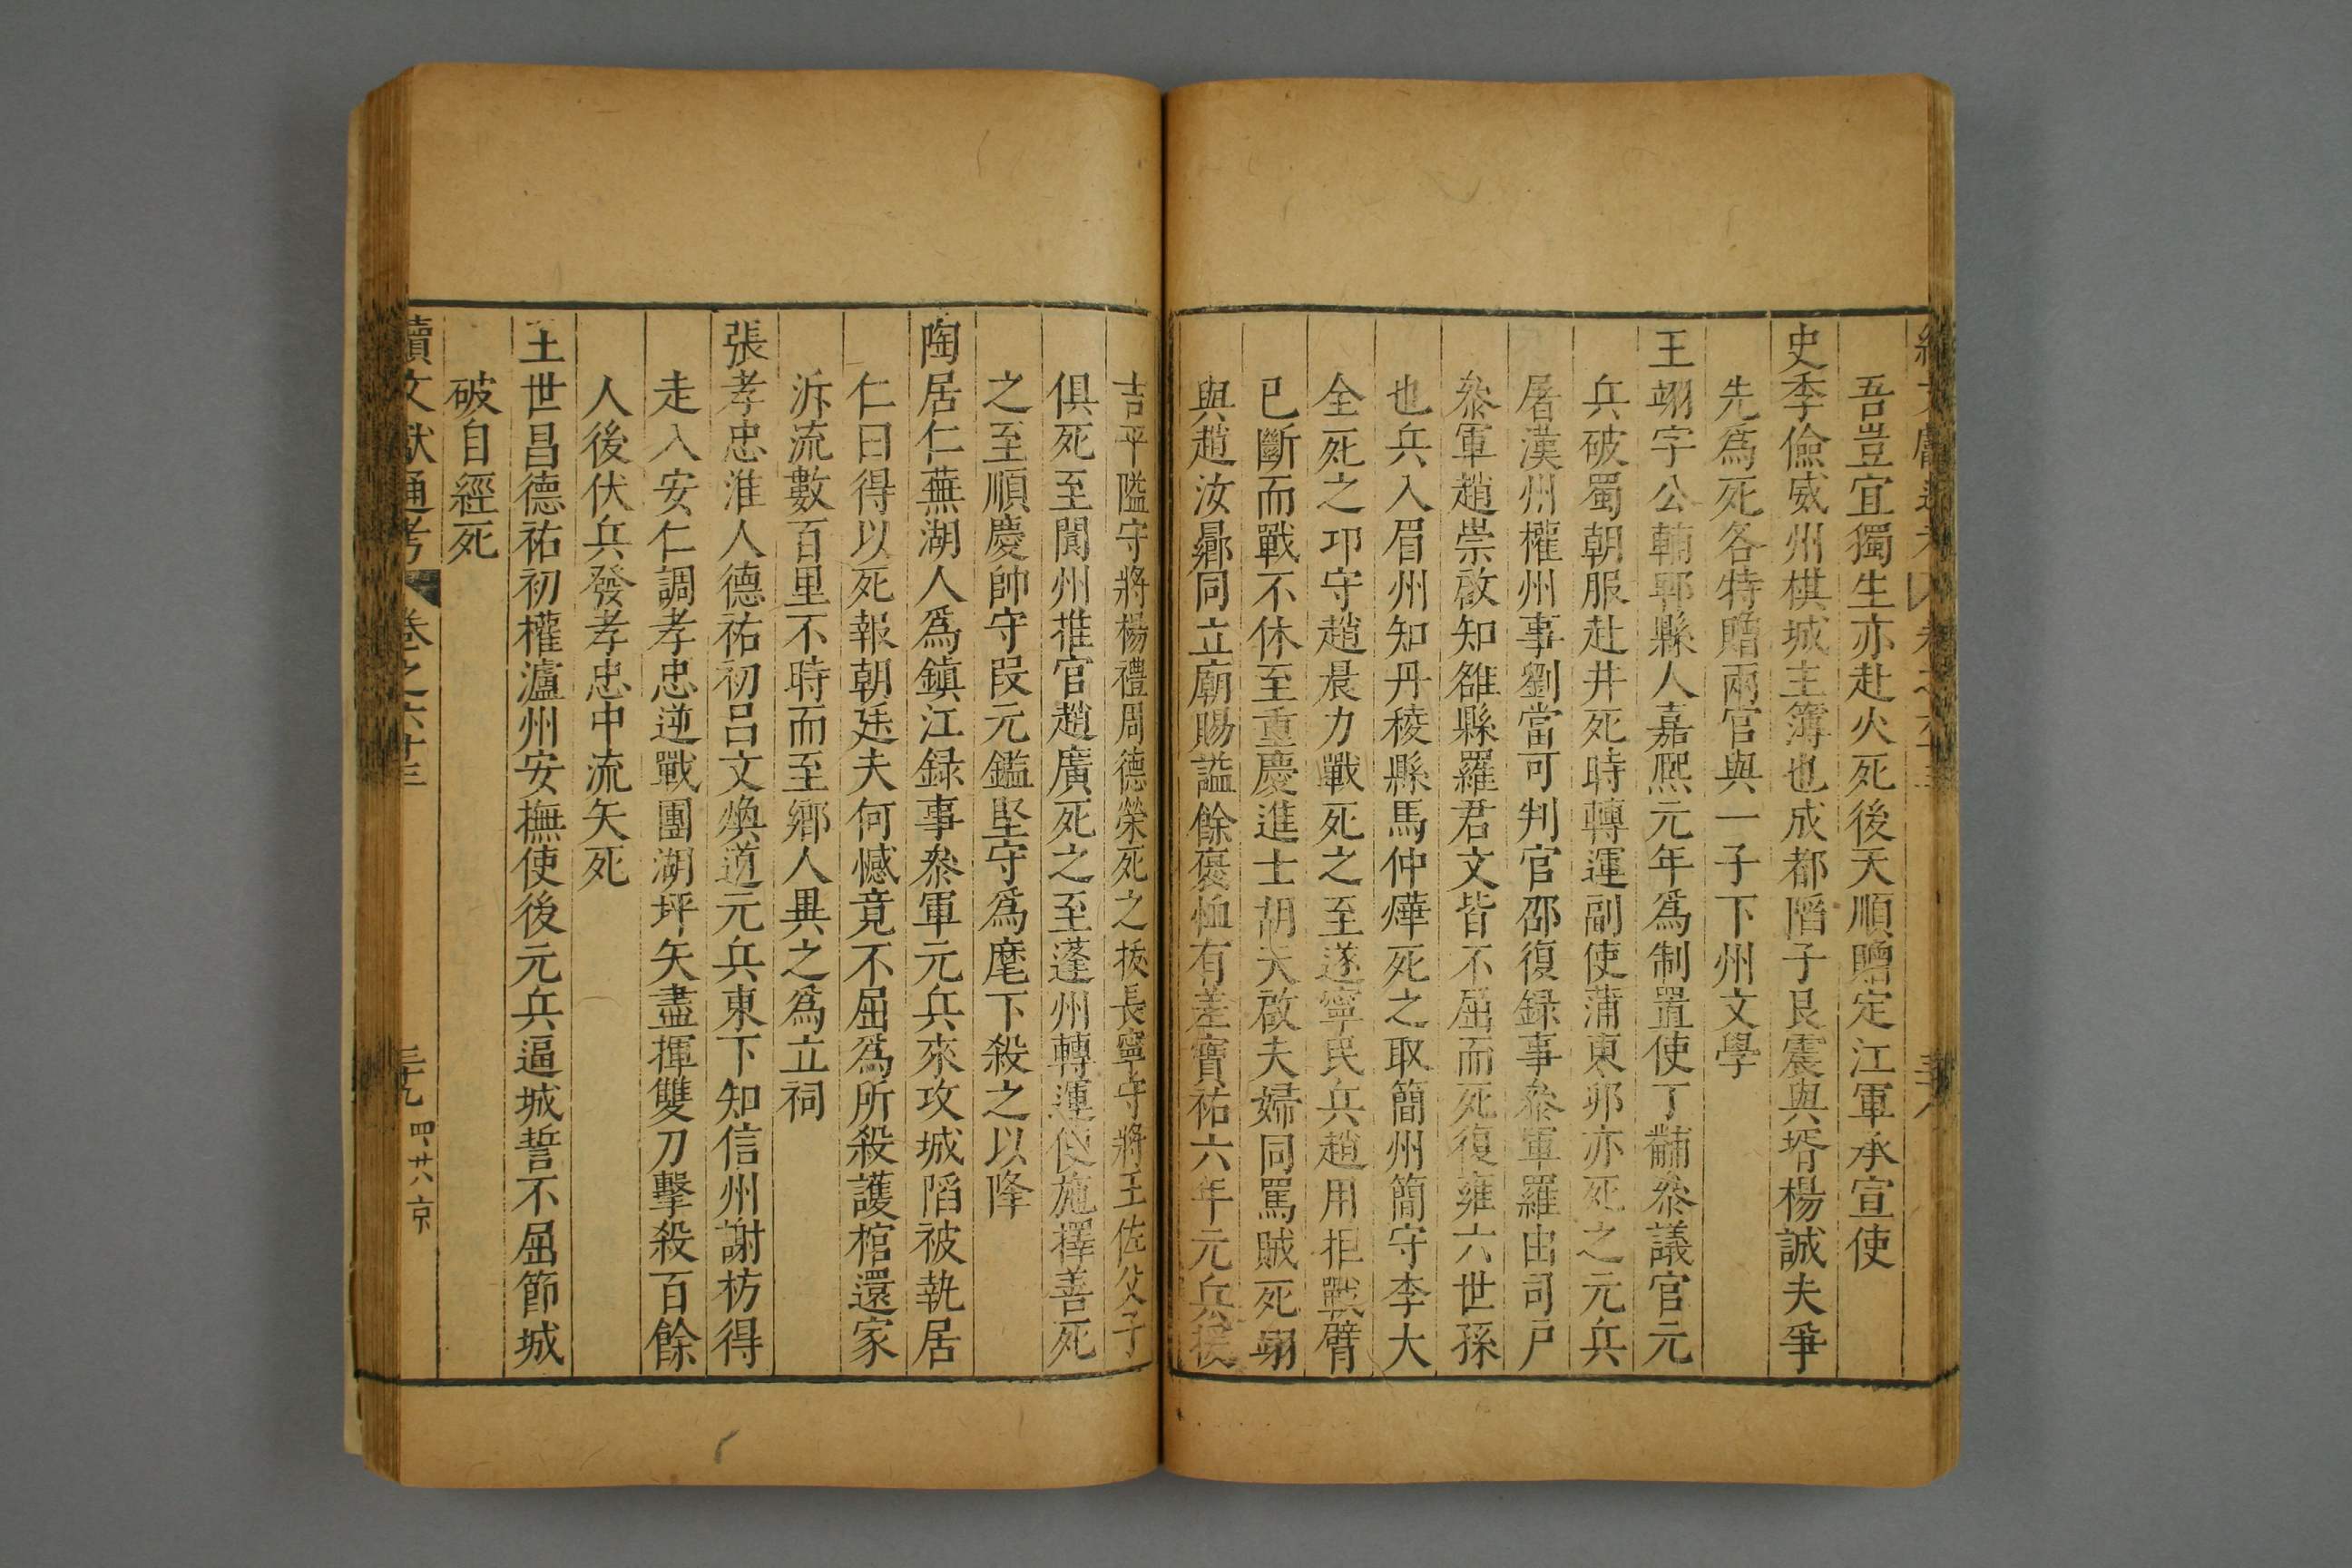 吾豈宜獨生亦赴火死後天順贈定江軍承宣使
史季儉威州棋城主簿也成都陷子良震與壻楊誠夫爭
先爲死各特贈兩官與一子下州文學
王翊字公輔郫縣人嘉熙元年爲制置使丁黼叅議官元
兵破蜀朝服赴井死時轉運副使蒲東卯亦死之元兵
屠漢州權州事劉當可判官邵復録事叅軍羅由司戶
叅軍趙崇啟知雒縣羅君文皆不屈而死復雍六世孫
也兵入眉州知丹稜縣馬仲燁死之取簡州簡守李大
全死之卭守趙晨力戰死之至遂寧民兵趙用拒戰臂
已斷而戰不休至重慶進士胡天啟夫婦同罵賊死翊
與趙汝曏同立廟賜諡餘褒恤有差寶祐六年元兵
吉平隘守將楊禮周德榮死之拔長寧守將王佐父子
俱死至閬州推官趙廣死之至蓬州轉運使施擇善死
之至順慶帥守段元鑑堅守爲麾下殺之以降
陶居仁蕪湖人爲鎮江録事叅軍元兵來攻城陷被執居
仁曰得以死報朝廷夫何憾竟不屈爲所殺護棺還家
泝流數百里不時而至鄉人異之爲立祠
張孝忠淮人德祐初呂文煥道元兵東下知信州謝枋得
走入安仁調孝忠逆戰團湖坪矢盡揮雙刀擊殺百餘
人後伏兵發孝忠中流矢死
王世昌德祐初權瀘州安撫使後元兵逼城誓不屈節城
破自經死
續文獻通考 卷之六十三 三十九 四廿六京